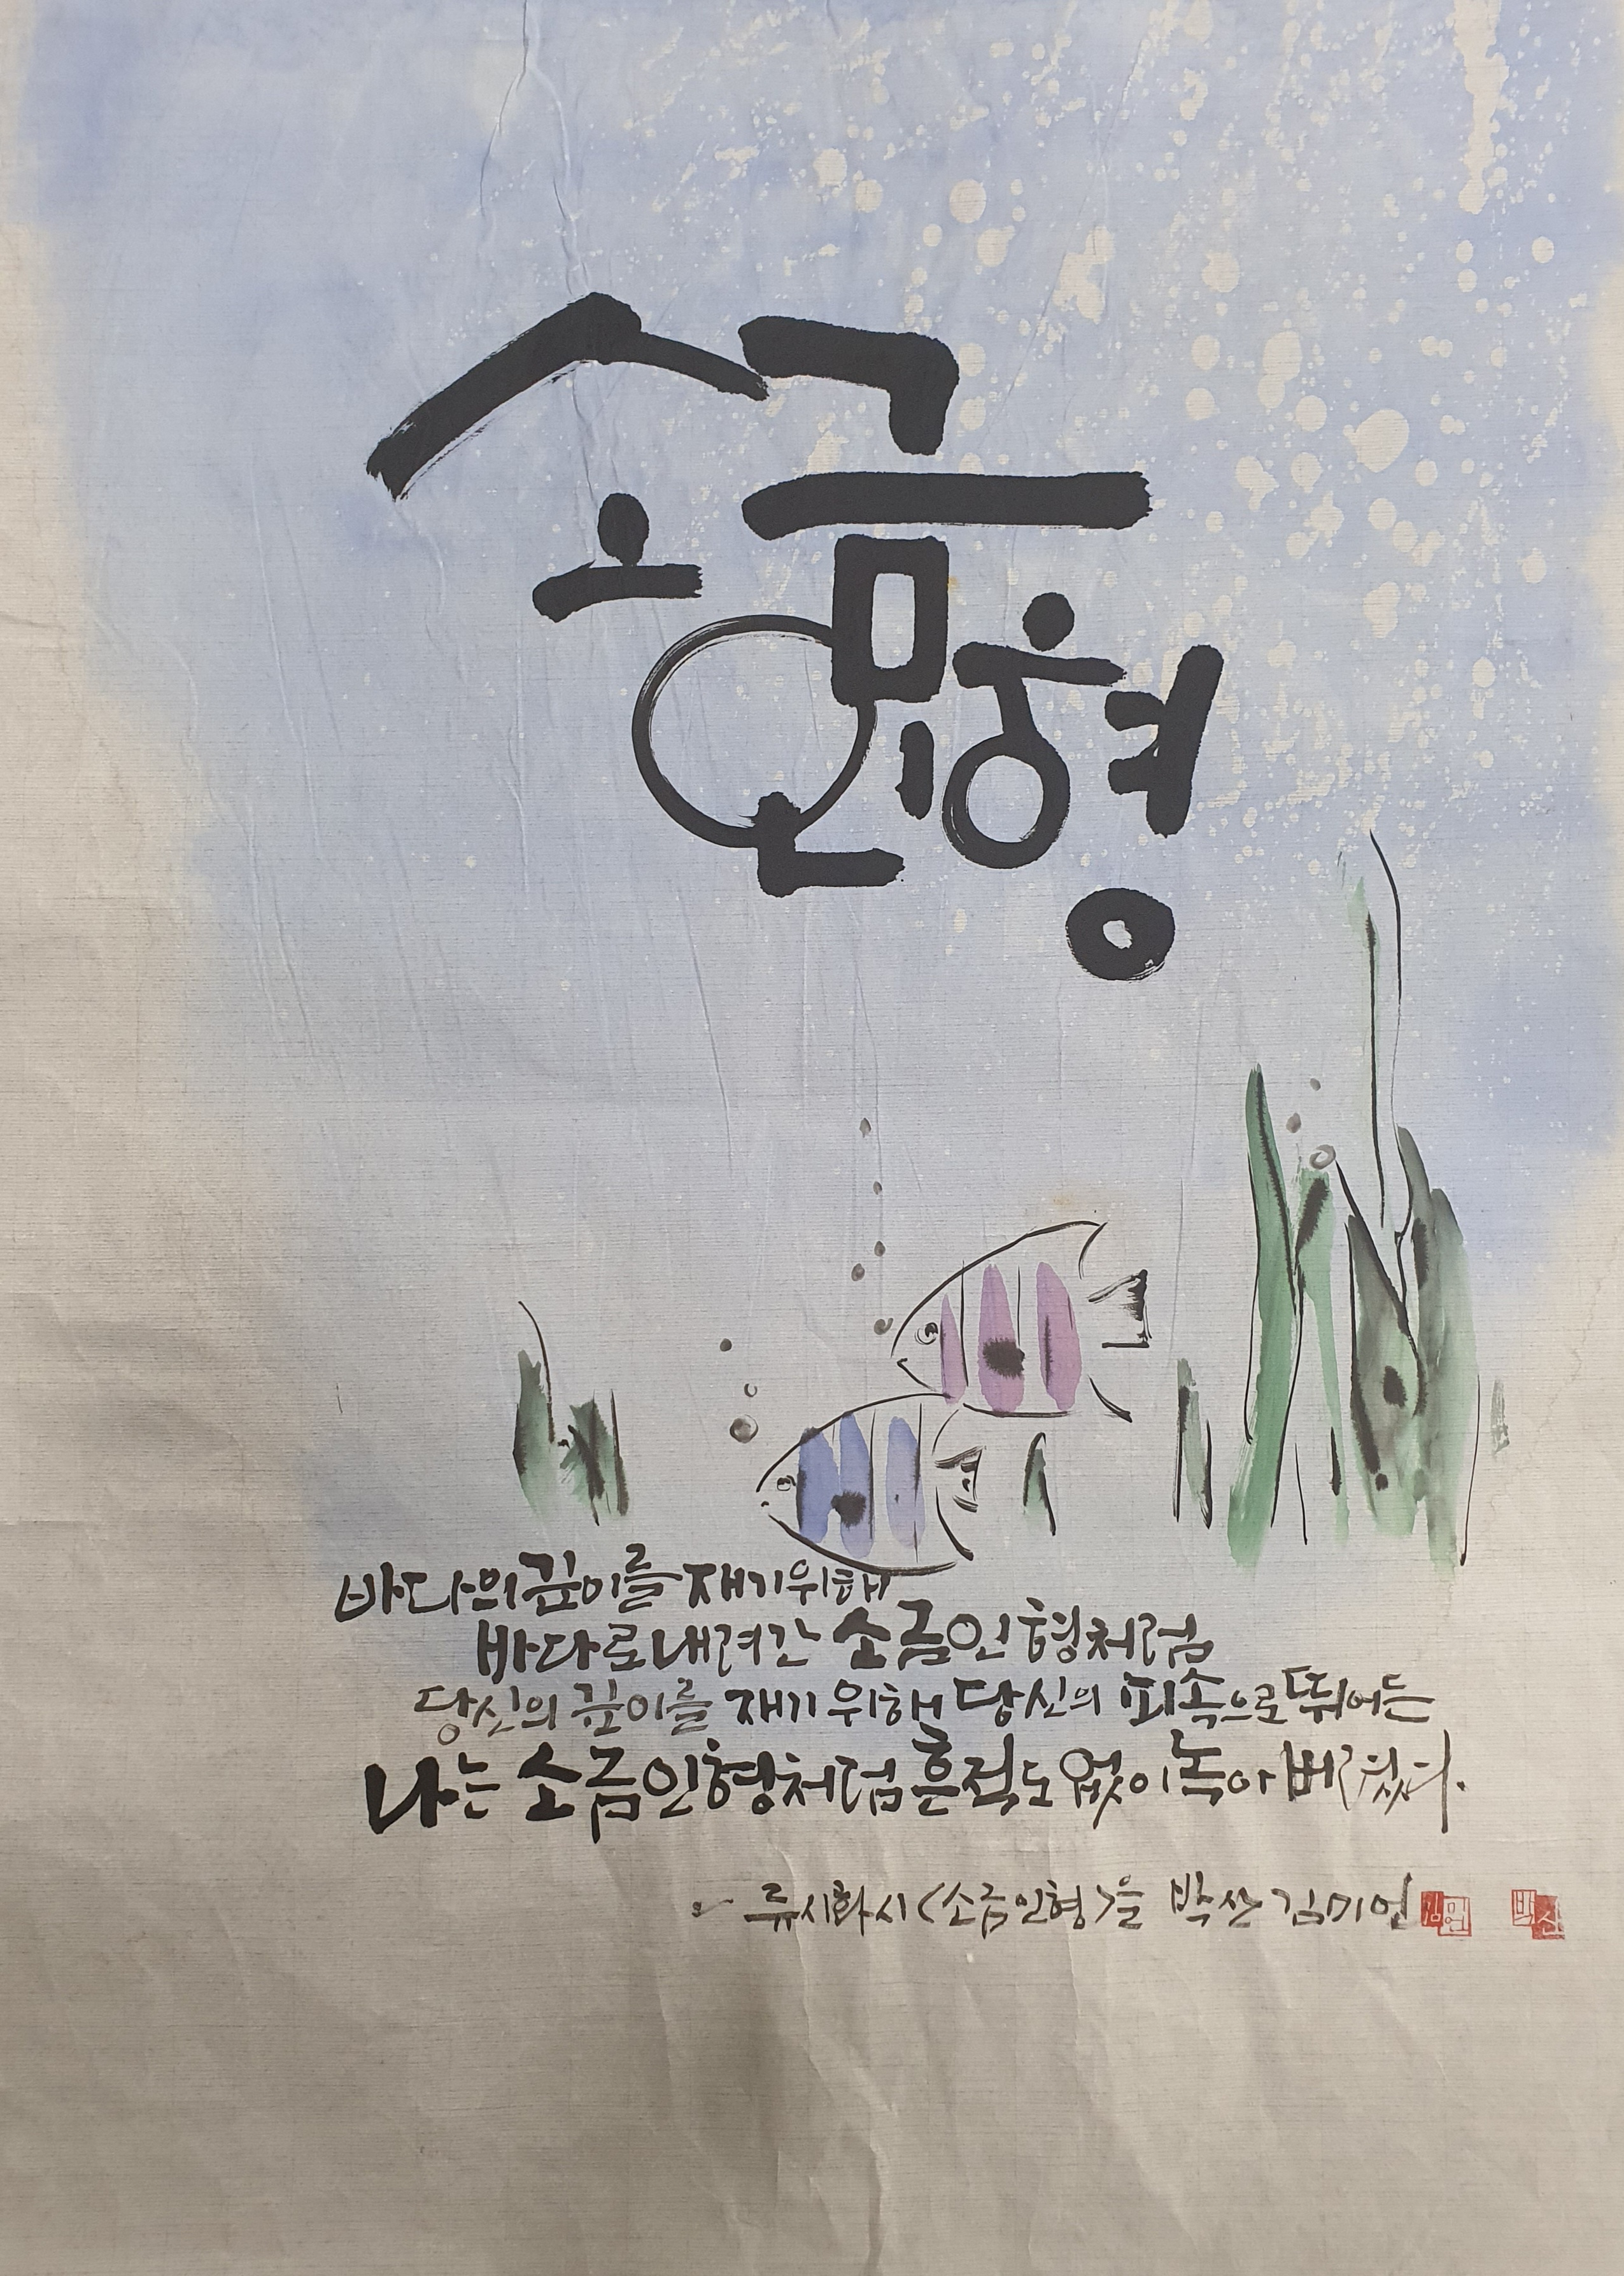 소금
인형
바다의 깊이를 재기위해
바다로 내려간 소금인형처럼
당신의 깊이를 재기 위해 당신의 피속으로 뛰어든
나는 소금인형처럼 흔적도 없이 녹아 버렸다.
류시화 시 <소금인형>을 박산 김미언
박산